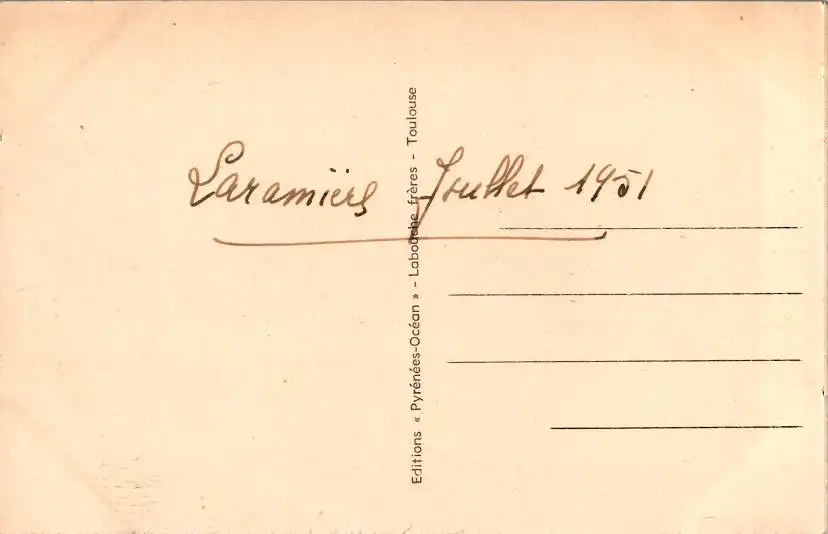 Laramière Juillet 1951
Editions « Pyrénées-Océan » - Labouche frères - Toulouse